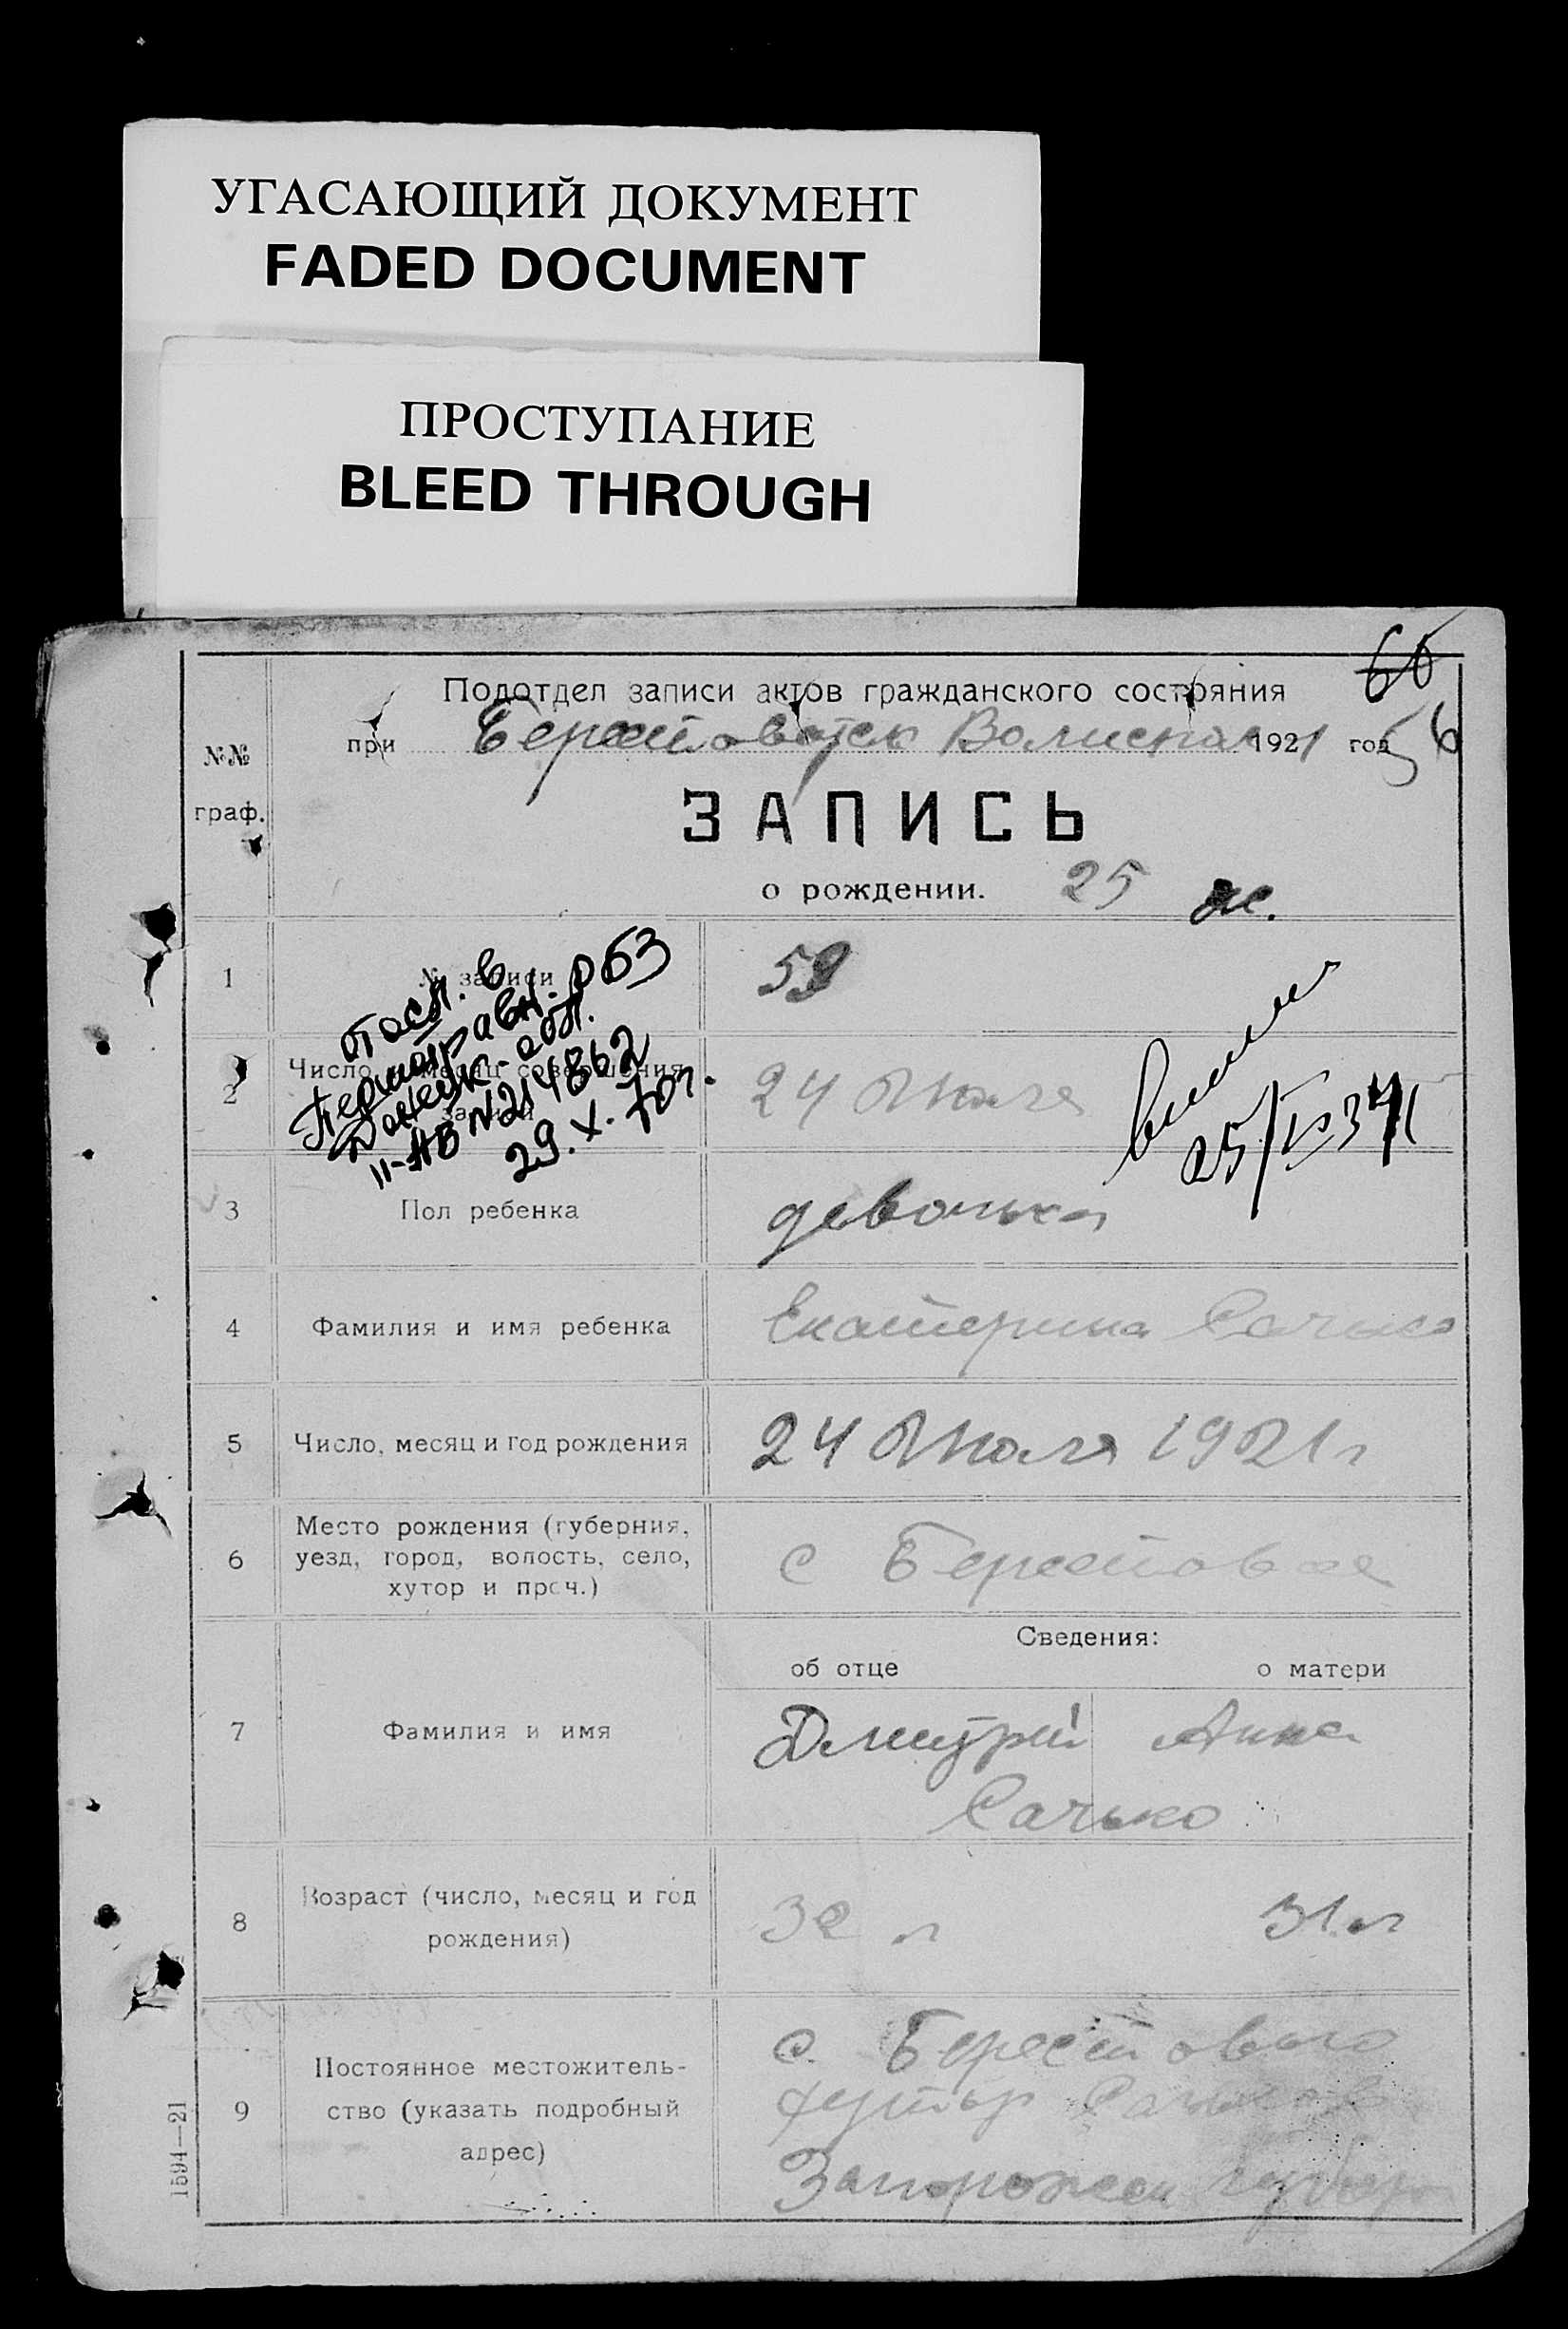 УГАСАЮЩИЙ ДОКУМЕНТ
FADED DOCUMENT
ПРОСТУПАНИЕ
BLEED THROUGH
60
Подотдел записи актов гражданского состояния
при 1921 год 56
№№ граф.
ЗАПИСЬ
о рождении. 25 ж.
1 № записи 59
2 Число, месяц совершения записи 24 Июля
29.X.70г.
3 Пол ребенка девочька
4 Фамилия и имя ребенка Екатерина Сачько
5 Число, месяц и год рождения 24 Июля 1921 г
6 Место рождения (губерния, уезд, город, волость, село, хутор и проч.) с Берестовое
Сведения:
об отце о матери
7 Фамилия и имя Дмитрий Анна
Сачько
8 Возраст (число, месяц и год рождения) 32 л 31 л
9 Постоянное местожитель-
ство (указать подробный
адрес)
с. Берестового
хутор
Запорожск губер
1594—21